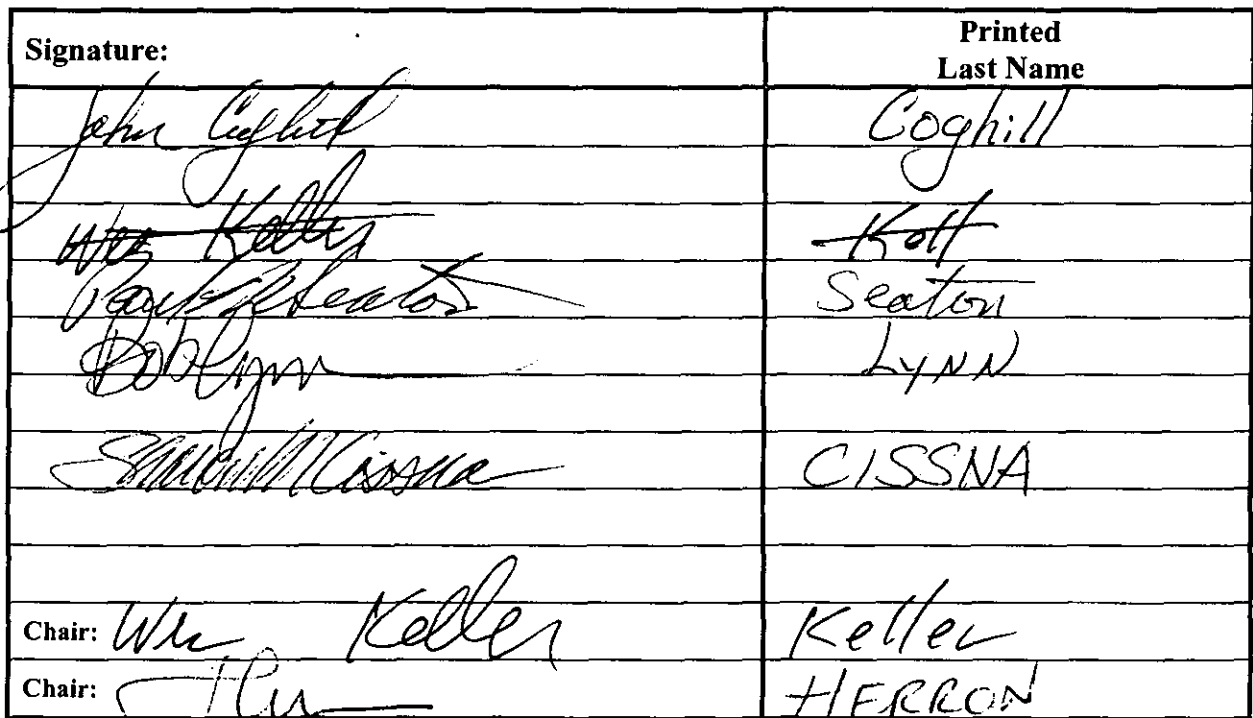 Signature: Printed Last Name
John Coghill Coghill
Wes Keller
Paul Seaton Seaton
Bob Lynn LYNN
Cissna CISSNA
Chair: Wes Keller Keller
Chair: HERRON